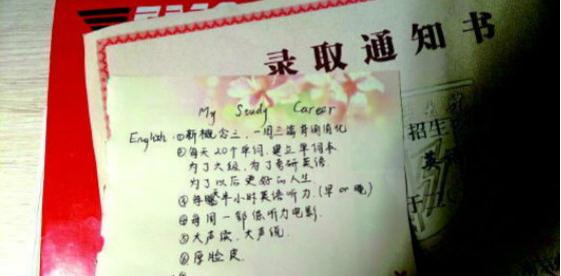 录取通知书
招生
My Study Career
English: ①新概念三,一周三篇背诵消化
②每天20个单词,建立单词本
为了六级,为了考研英语
为了以后更好的人生
③每天半小时英语听力.(早 or 晚)
④每周一部练听力电影.
⑤大声读,大声说.
⑥厚脸皮.